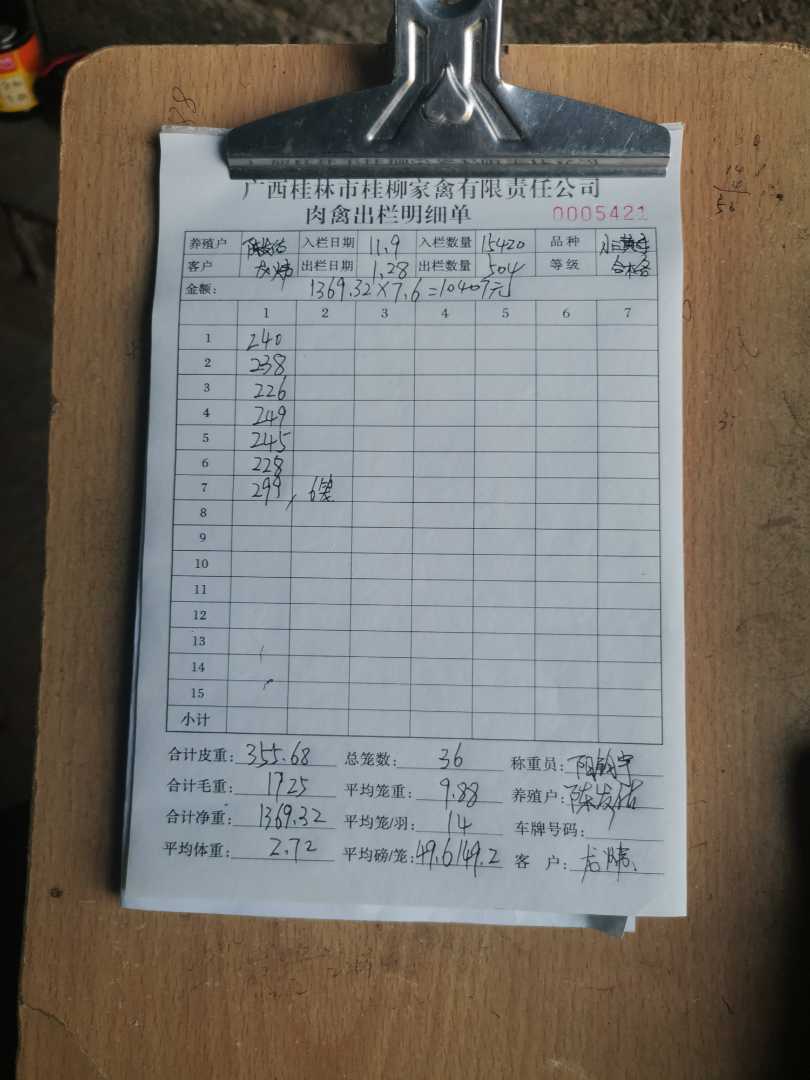 广西桂林市桂柳家禽有限责任公司
肉禽出栏明细单 0005421
养殖户 陈发佑 入栏日期 11.9 入栏数量 15420 品种
客户 龙炜 出栏日期 1.28 出栏数量 504 等级 合格
金额: 1369.32×7.6=10407元
1 2 3 4 5 6 7
1 240
2 238
3 226
4 249
5 245
6 228
7 299, 6笼
8
9
10
11
12
13
14
15
小计
合计皮重: 355.68 总笼数: 36 称重员:
合计毛重: 1725 平均笼重: 9.88 养殖户: 陈发佑
合计净重: 1369.32 平均笼/羽: 14 车牌号码:
平均体重: 2.72 平均磅/笼: 49.6149.2 客 户: 龙炜